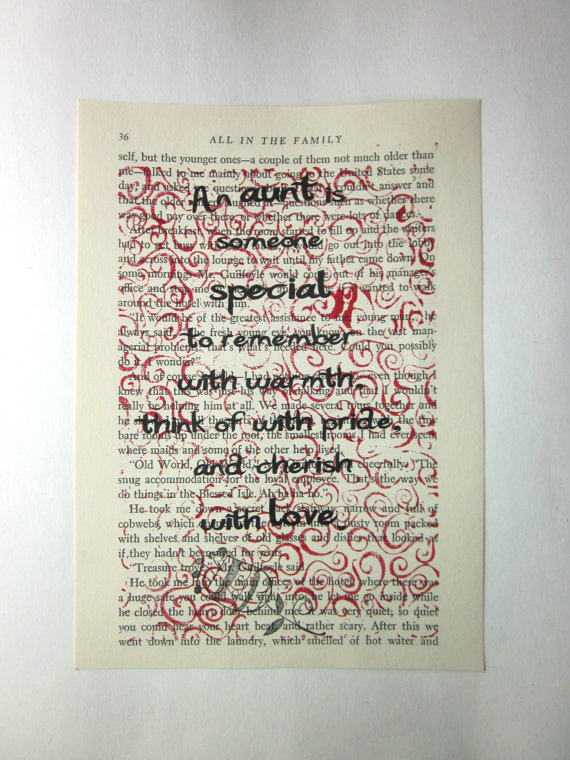 36
ALL IN THE FAMILY
An aunt is
someone
special
to remember
with warmth,
think of with pride,
and cherish
with love
self, but the younger ones—a couple of them not much older than
me—talked to me mainly about going to the United States some
day and asked me questions I couldn't answer and
that the older questions such as whether there
was to pay over there, or whether there were lots of dances.
After breakfast, when the room started to fill up and the waiters
had to get busy would go out into the lobby
and across into the lounge to wait until my father came down
some morning. Mr. Guilfoyle would come out of his manager's
office and wanted to walk
around the hotel with him.
"It would be of the greatest assistance to me, young man," he
always said. "The fresh young eye, you know, on the vast man-
agerial problems, that's what's needed here. Could you possibly
do it, I wonder?"
And of course even though I
knew that this was just his way of talking and that I wouldn't
really be helping him at all. We made several tours together and
he
bare rooms up under the roof, the smallest rooms I had ever seen,
where maids and some of the other help lived.
"Old World, cheerfully. "The
snug accommodation for the loyal employee. That's the way we
do things in the Blessed Isle. Ah ha ha ho."
He took me down a secret back stairway, narrow and full of
cobwebs, which dusty room packed
with shelves and shelves of old glasses and dishes that looked as
if they hadn't been used for years.
"Treasure trove," Mr. Guilfoyle said.
He took me into the main office of the hotel, where there was
a huge safe you could walk right into; he let me go inside while
he closed the heavy door behind me; it was very quiet, so quiet
you could hear your heart beat, and rather scary. After this we
went down into the laundry, which smelled of hot water and